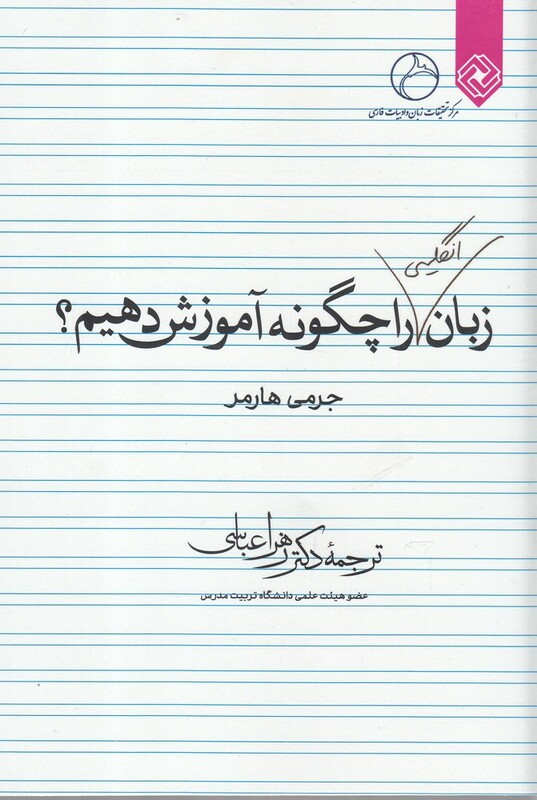 مرکز تحقیقات زبان و ادبیات فارسی
انگلیسی
زبان را چگونه آموزش دهیم؟
جرمی هارمر
ترجمهٔ دکتر زهرا عباسی
عضو هیئت علمی دانشگاه تربیت مدرس